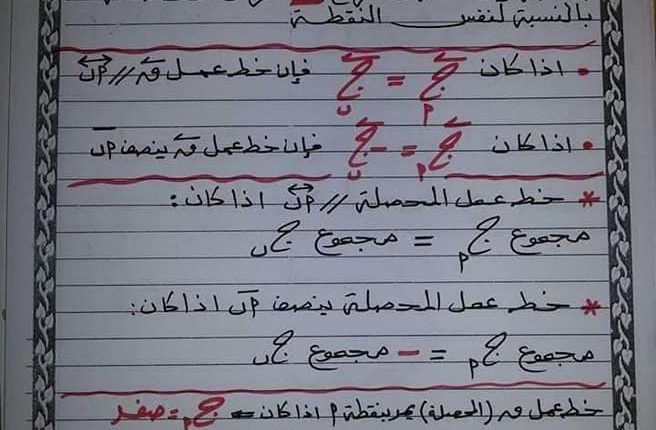 بالنسبة لنفس النقطة
• اذا كان ج أ = ج ب فإن خط عمل ق // أب
• اذا كان ج أ = - ج ب فإن خط عمل ق ينصف أب
* خط عمل المحصلة // أب اذا كان:
مجموع ج أ = مجموع ج ب
* خط عمل المحصلة ينصف أب اذا كان:
مجموع ج أ = - مجموع ج ب
خط عمل ق (المحصلة) يمر بنقطة أ اذا كان ج أ = صفر